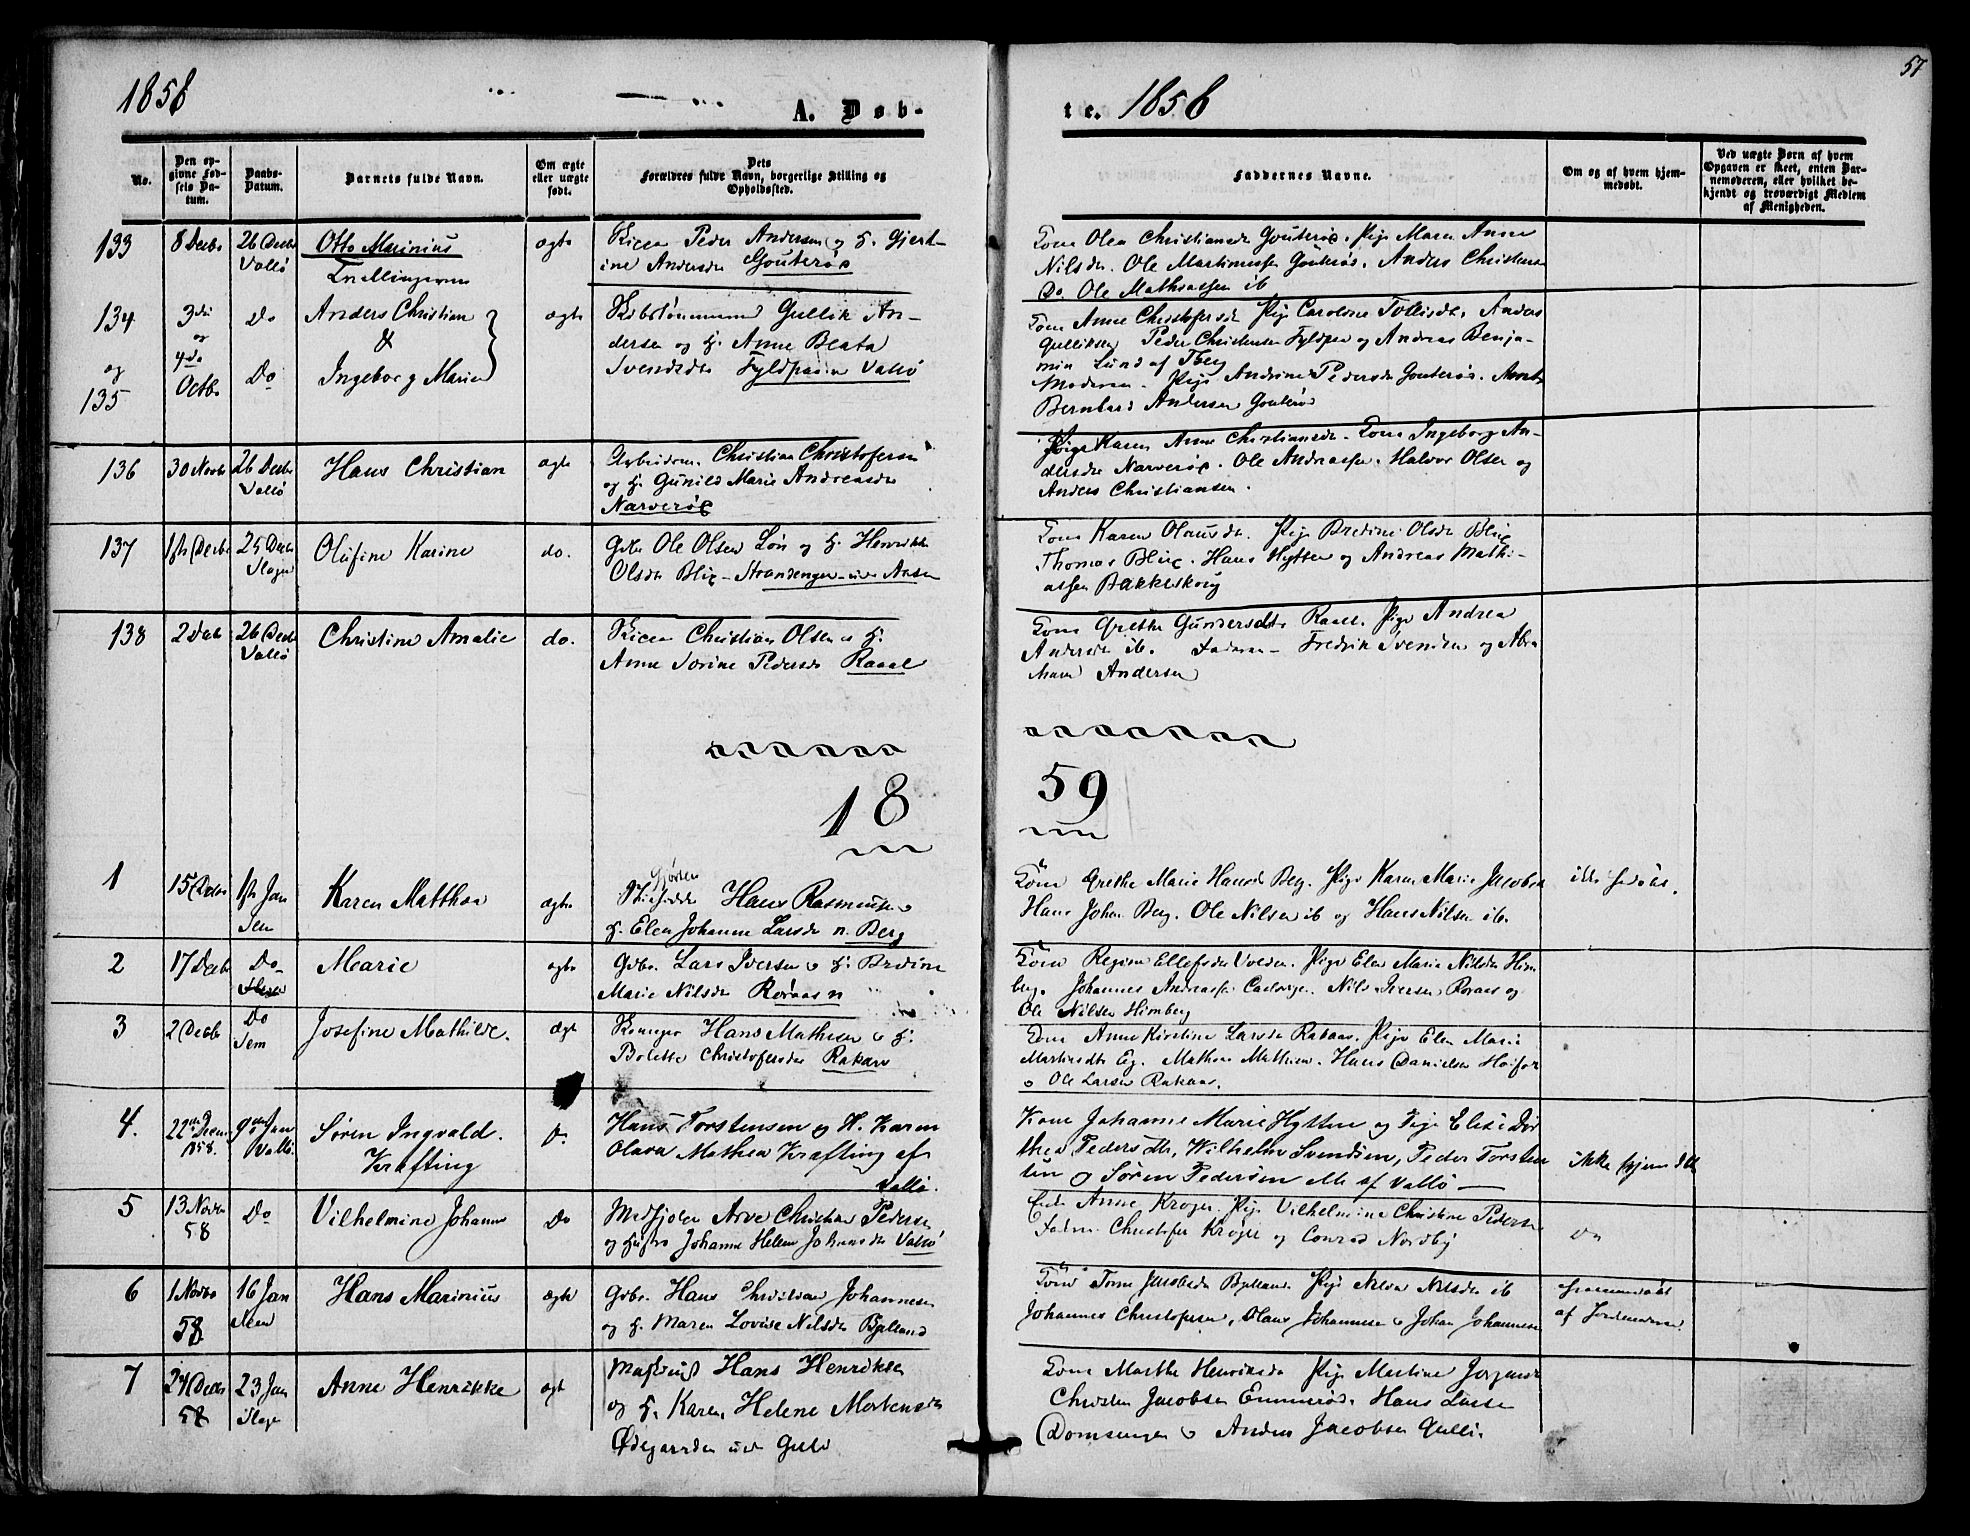 1858
A. Døb-
te. 1858
57
No.
Den op-
givne Fød-
sels Da-
tum.
Daabs-
Datum.
Barnets fulde Navn.
Om ægte
eller uægte
født.
Dets
Forældres fulde Navn, borgerlige Stilling og
Opholdssted.
Faddernes Navne.
Om og af hvem hjem-
medøbt.
Ved uægte Børn af hvem
Opgaven er skeet, enten Bar-
nemoderen, eller hvilket be-
kjendt og troværdigt Medlem
af Menigheden.
133
8 Decbr
26 Decbr
Vallø
Otto Marinius
Tvillingerne
ægte
Peder Andersen og H. Gjert-
ine Andersdr Gouterød
Kone Olea Christiansdr Gouterød. Pige Maren Anne
Nilsdr. Ole Martinussen Gouterød. Anders Christensen
Do. Ole Mathiassen ib
134
og
135
3die
og
4de
Octbr
Do
Do
Anders Christian
&
Ingeborg Marie
ægte
Gullik An-
dersen og H. Anne Beata
Svendsdtr Fyldpaa Vallø
Kone Anne Christofersdr Pige Caroline Anders
Gulliksen Peder Christensen Fyldpaa og Andreas Benja-
min Lund af Tberg
Moderen. Pige Andrine Pedersdr Gouterød.
Bernhard Andersen Gouterød
136
30 Novbr
26 Decbr
Vallø
Hans Christian
ægte
Arbeidsm. Christian Christofersen
og H. Gunild Marie Andreasdr
Narverød
Pige Karen Anne Christiansdr. Kone Ingeborg An-
dersdr Narverød. Ole Andreassen. Halvor Olsen og
Anders Christiansen.
137
1ste Decbr
25 Decbr
Slagen
Olufine Karine
do.
Gdbr Ole Olsen Løn og H. Henrikke
Olsdr Blix - Strandengen
Kone Karen Olausdr. Pige Bredine Olsdr Blix
Thomas Blix. Hans Hytten og Andreas Mathi-
assen Bakkeskoug
138
2 Decbr
26 Decbr
Vallø
Christine Amalie
do.
Christian Olsen o H.
Anne Sorine Pedersdr Raael
Kone Grethe Gundersdtr Raael. Pige Andrea
Andersdr ib. Faderen - Fredrik Svendsen og Abra
ham Andersen
18
59
1
15 Decbr
1ste Jan
Sem
Karen Mathea
ægte
Hans Rasmussen o
H. Elen Johanne Larsdr n. Berg
Kone Grethe Marie Hansdr Berg. Pige Karen Marie Jacobsdr
Hans Johan Berg. Ole Nilsen ib og Hans Nilsen ib.
2
17 Decbr
Do
Marie
ægte
Gdbr. Lars Iversen o H. Bredine
Marie Nilsdr Roraas n
Kone Regine Ellefsdr Volden. Pige Elen Marie Nilsdr Him
berg. Johannes Andreassen Nils Iversen Roraas og
Ole Nilsen Himberg
3
2 Decbr
Do
Sem
Josefine Mathilde.
Ægt
Hans Mathisen o H.
Bolette Christofersdr Rakaas
Kone Anne Kirstine Larsdr Rakaas. Pige Elen Marie
Martinsdtr Eg. Mathias Mathisen. Hans Danielsen
o Ole Larsen Rakaas.
4.
22de Decm
1858.
9de Jan
Vallø.
Søren Ingvald.
Krafting
D.
Hans Torstensen og H. Karen
Olava Mathea Krafting af
Vallø.
Kone Johanne Marie Hytten og Pige Elise Dor
thea Pedersdtr, Wilhelm Svendsen, Peder Torsten
sen og Søren Pedersen Alle af Vallø
ikke hjemdøbt
5
13 Novbr
58
Do
Vilhelmine Johanne
Do
Arve Christian Pedersen
og Hustro Johanne Helene Johansdtr Vallø
Anne Krøger. Pige Vilhelmine Christine Pedersen
Faderen. Christofer Krøger og Conrad Nordby
Do
6
1 Novbr
58
16 Jan
Sem
Hans Marinius
Ægte
Gdbr. Hans Christian Johannesen
og H. Maren Lovise Nilsdr Bjelland
Kone Torine Jacobsdr Bjelland. Pige Nilsdr ib
Johannes Christofersen, Hans Johannesen o Johan Johannesen
hjemmedøbt
af Jordemoderen
7
24 Decbr
58
23 Jan
Slagen
Anne Henrikke
ægte
Hans Henriksen
og H. Karen Helene Mortensdr
Ødegaarden
Kone Marthe Henriksdr Pige Mertine Jørgensdr
Christen Jacobsen Hans Larsen
Domsengen o Anders Jacobsen Gulli.